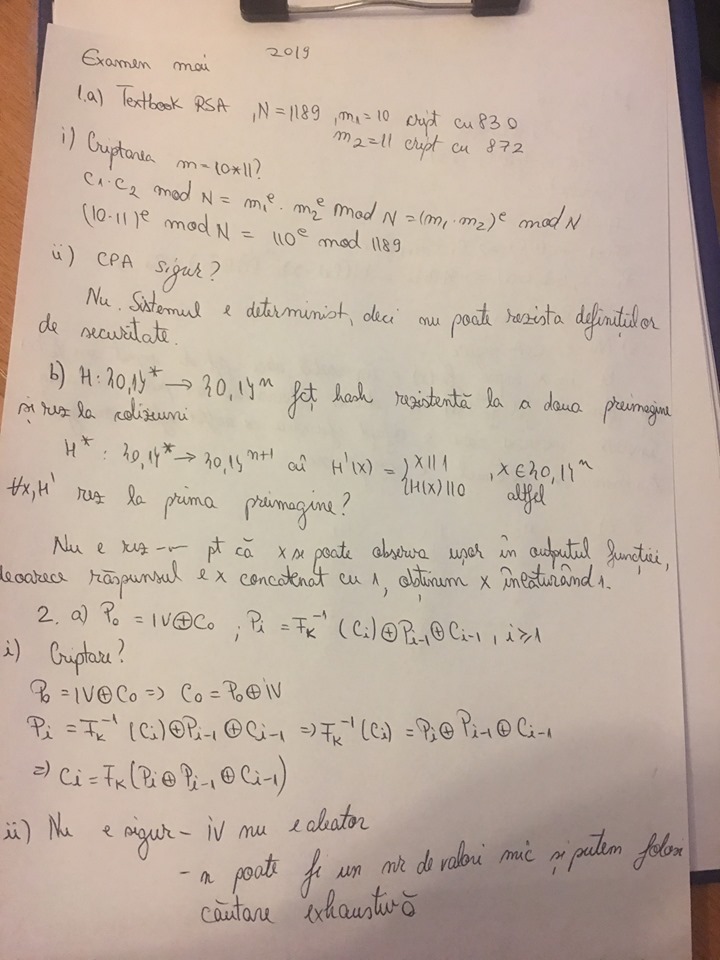 Examen mai 2019
1.a) Textbook RSA , N=1189 , m₁=10 cript cu 830
m₂=11 cript cu 872
i) Criptarea m=10*11?
C₁·C₂ mod N = m₁ᵉ · m₂ᵉ mod N = (m₁·m₂)ᵉ mod N
(10·11)ᵉ mod N = 110ᵉ mod 1189
ii) CPA sigur?
Nu. Sistemul e determinist, deci nu poate rezista definițiilor
de securitate.
b) H: {0,1}* → {0,1}ⁿ fct hash rezistentă la a doua preimagine
și rez la coliziuni
H* : {0,1}* → {0,1}ⁿ⁺¹ aî H'(x) = { x||1 , x∈{0,1}ⁿ
H(x)||0 altfel
∀x, H' rez la prima preimagine?
Nu e rez pt că x se poate observa ușor în outputul funcției,
deoarece răspunsul e x concatenat cu 1, obținem x înlăturând 1.
2. a) P₀ = IV⊕C₀ ; Pᵢ = F_K⁻¹ (Cᵢ)⊕Pᵢ₋₁⊕Cᵢ₋₁, i≥1
i) Criptare?
P₀ = IV⊕C₀ => C₀ = P₀⊕IV
Pᵢ = F_K⁻¹ (Cᵢ)⊕Pᵢ₋₁⊕Cᵢ₋₁ => F_K⁻¹(Cᵢ) = Pᵢ⊕Pᵢ₋₁⊕Cᵢ₋₁
=> Cᵢ = F_K(Pᵢ⊕Pᵢ₋₁⊕Cᵢ₋₁)
ii) Nu e sigur - iv nu e aleator
- n poate fi un nr de valori mic și putem folosi
căutare exhaustivă